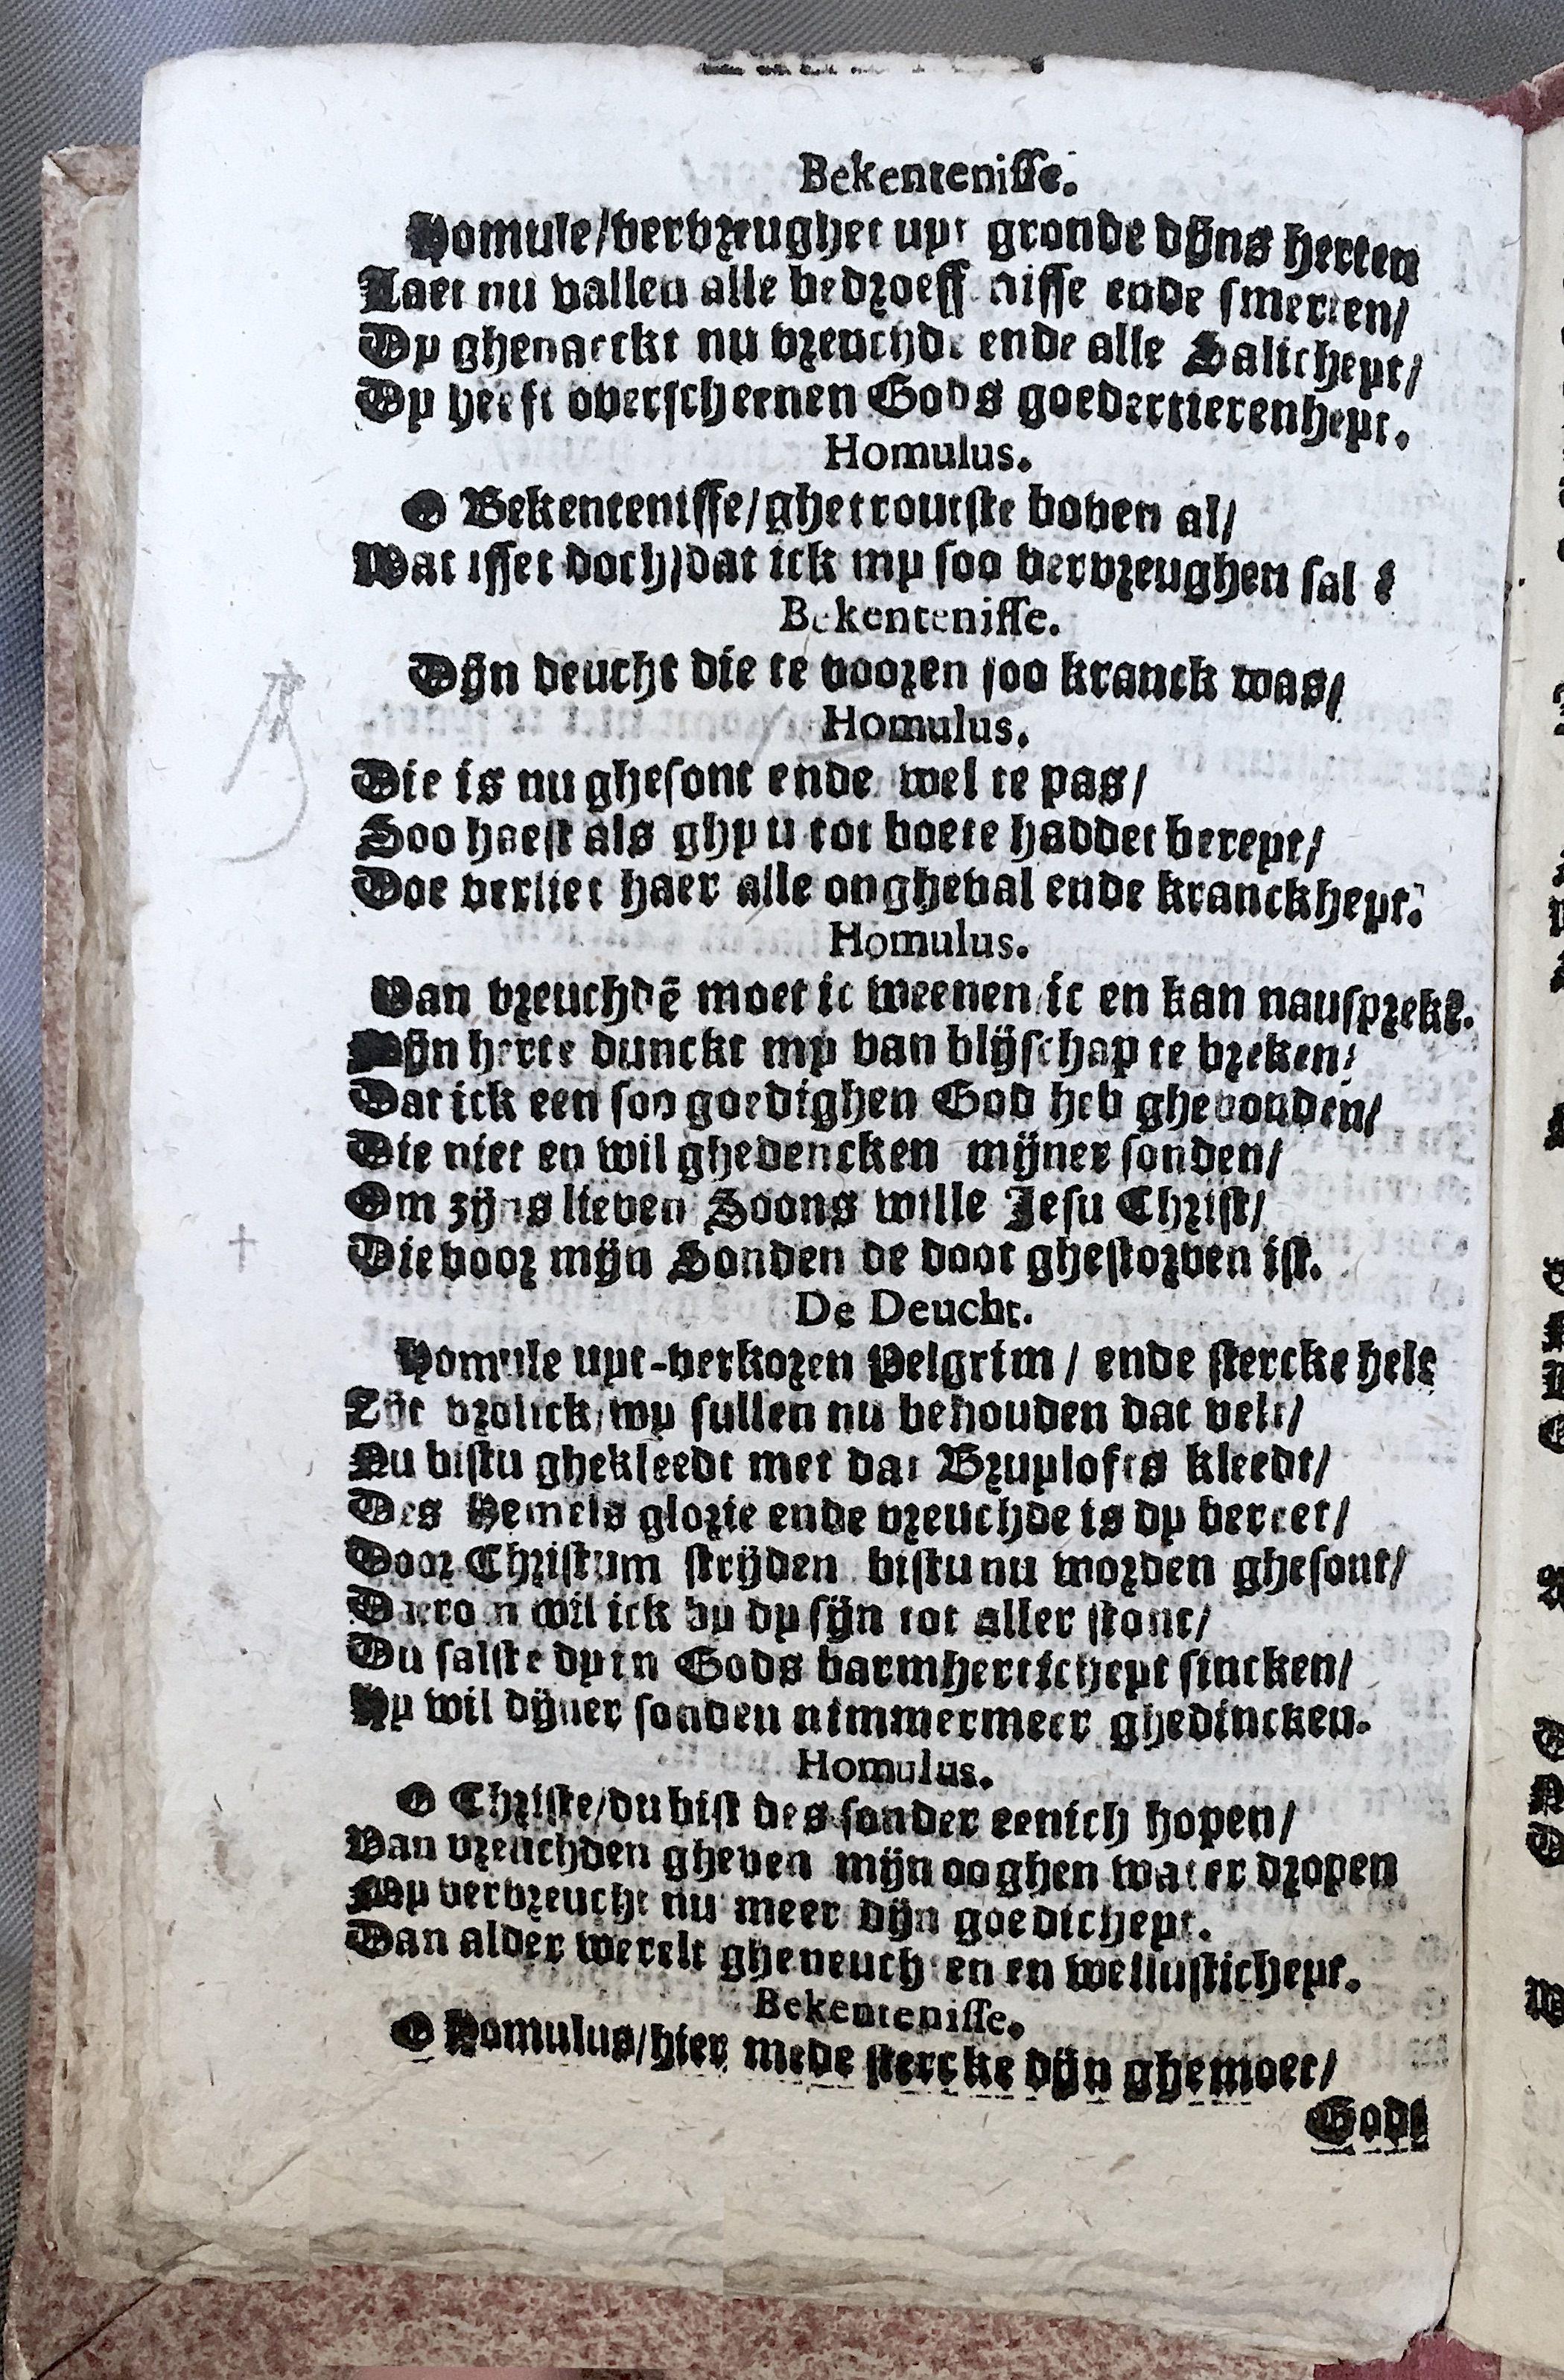 Bekentenisse.
Homule/verbzeughet uyt gronde dijns herten
Laet nu vallen alle bedroeff nisse ende smerten/
Dy ghenaeckt nu vreuchde ende alle Salicheyt/
Dy heeft overscheenen Gods goedertierenheyt.
Homulus.
O Bekentenisse/ghetroutste boven al/
Wat isset doch/dat ick my soo vervreughen sal ?
Bekentenisse.
Dijn deucht die te vooren soo kranck was/
Homulus.
Die is nu ghesont ende wel te pas/
Soo haest als ghy u tot boete haddet bereyt/
Doe verliet haer alle ongheval ende kranckheyt.
Homulus.
Van vreuchdē moet ic weenen/ic en kan nau sprekē.
Mijn herte dunckt my van blijschap te breken/
Dat ick een soo goedighen God heb ghevonden/
Die niet en wil ghedencken mijner sonden/
Om zijns lieven Soons wille Jesu Christ/
Die voor mijn Sonden de doot ghestorven ist.
De Deucht.
Homule uyt-verkozen Pelgrim / ende stercke helt
Zijt vrolick/wy sullen nu behouden dat velt/
Nu bistu ghekleedt met dat Bruylofts kleedt/
Des Hemels glorie ende vreuchde is dy bereet/
Door Christum strijden bistu nu worden ghesont/
Daerom wil ick by dy sijn tot aller stont/
Du salste dy in Gods barmherticheyt sincken/
Hy wil dijner sonden nimmermeer ghedincken.
Homulus.
O Christe/du bist des sonder eenich hopen/
Van vreuchden gheven mijn ooghen water dropen
My vervreucht nu meer dijn goedicheyt.
Dan alder werelt gheneuchten en wellusticheyt.
Bekentenisse.
O Homulus/hier mede stercke dijn ghemoet/
Godt